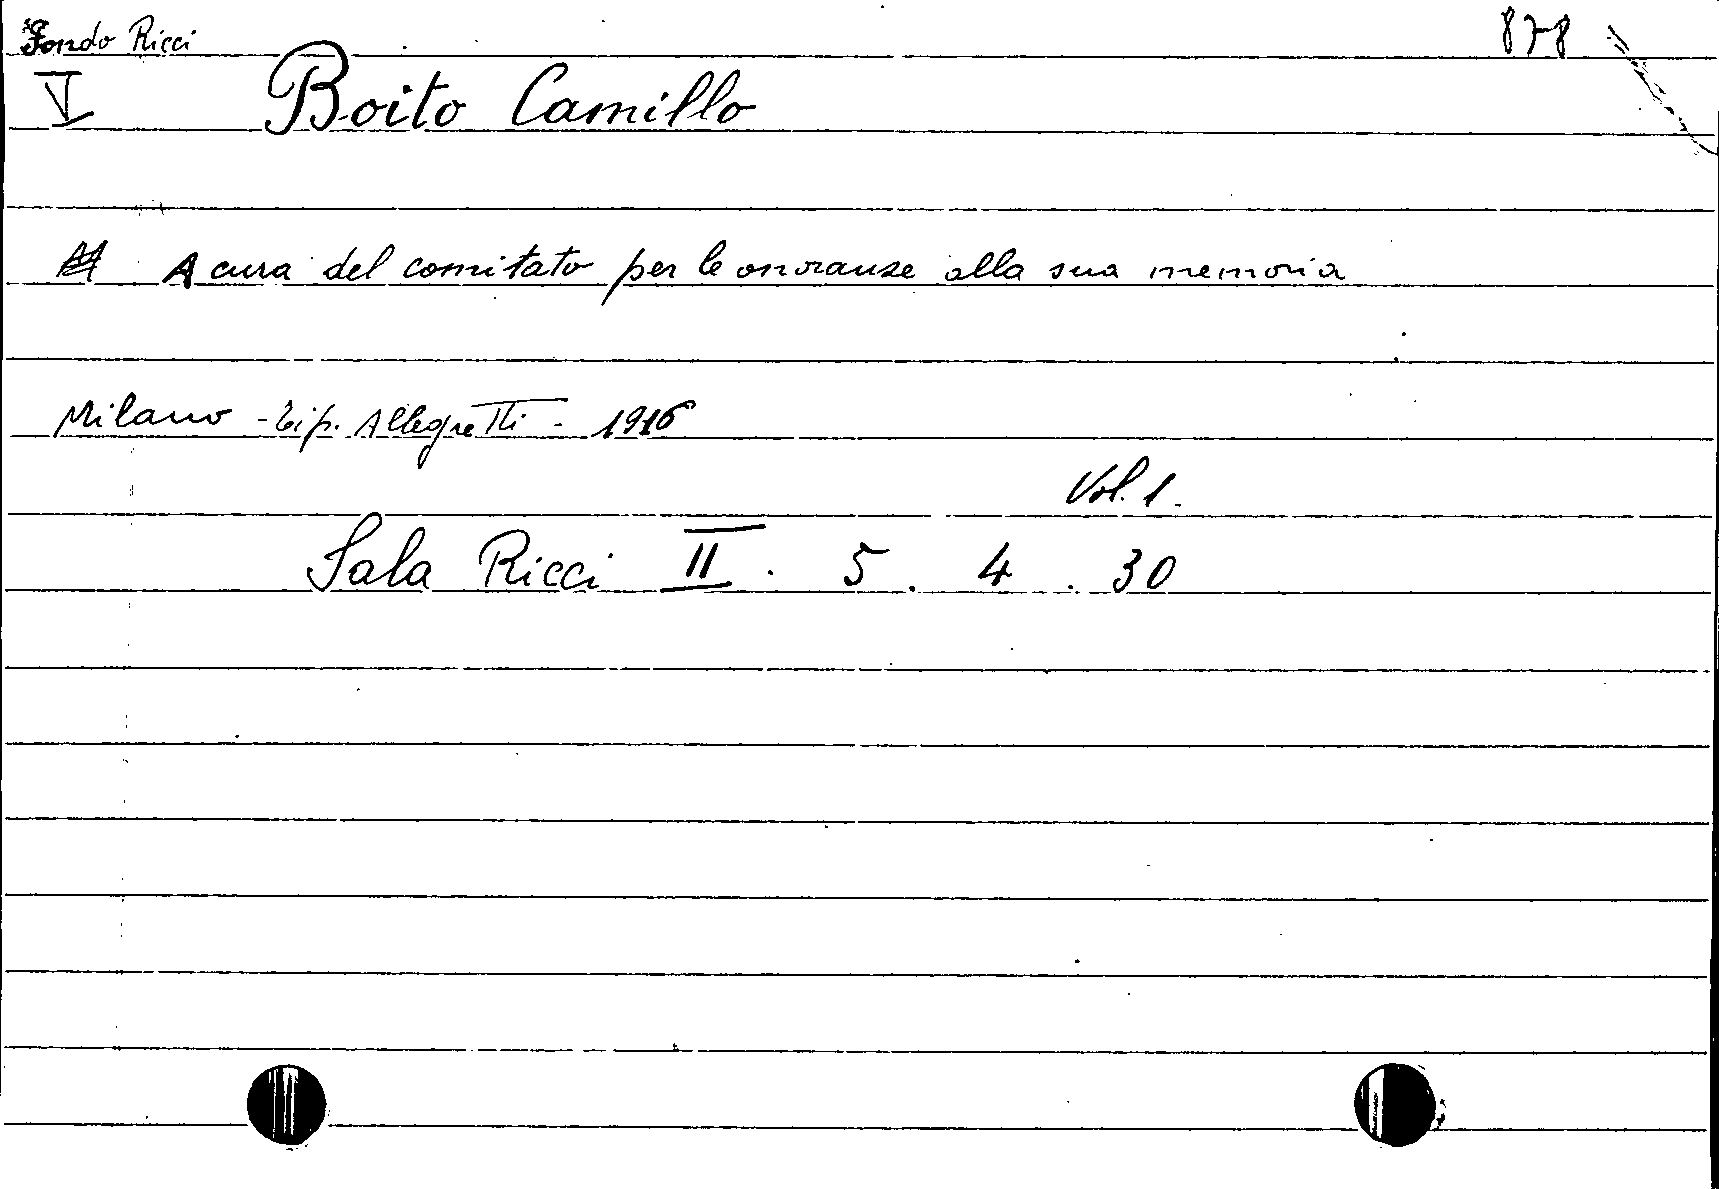 Fondo Ricci 878
V Boito Camillo
A cura del comitato per le onoranze alla sua memoria
Milano - Tip. Allegretti - 1916
Vol. 1.
Sala Ricci II. 5. 4. 30